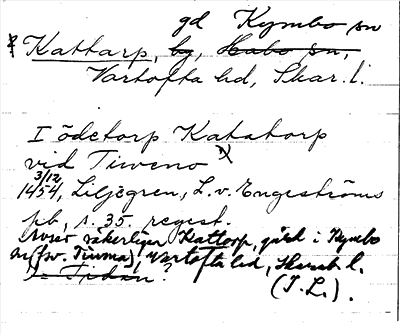 gd Kymbo sn
Kattarp, by, Habo sn,
Vartofta hd, Skar. l.
I ödetorp Katatorp
vid Tiweno x)
3/12
1454, Liljegren, L. v. Engeströms
pb, s. 35. regest.
Avser säkerligen Kattorp, gård i Kymbo
sn (fsv. Tiuma), Vartofta hd, Skarab. l.
(I. L.).